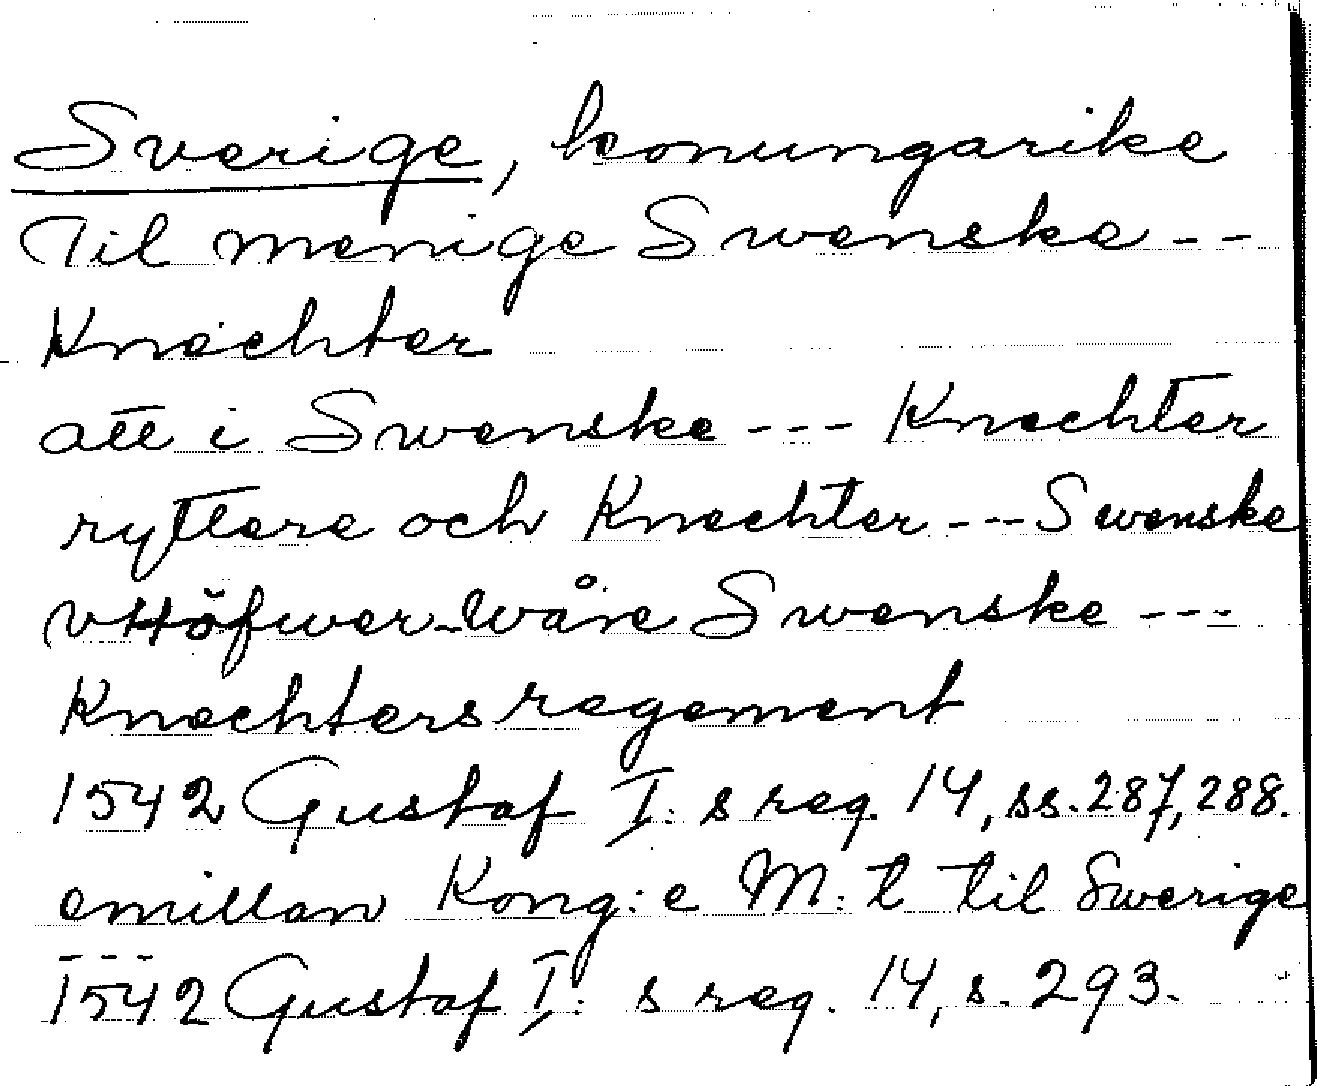 Sverige, konungarike
Til menige Swenske - -
Knechter
att i Swenske - - - Knechter
ryttere och Knechter - - - Swenske
vttöfwer wåre Swenske - - -
Knechters regement
1542 Gustaf I: s reg. 14, ss. 287, 288.
emillan Kong: e M: t til Swerige
- - -
1542 Gustaf I: s reg. 14, s. 293.